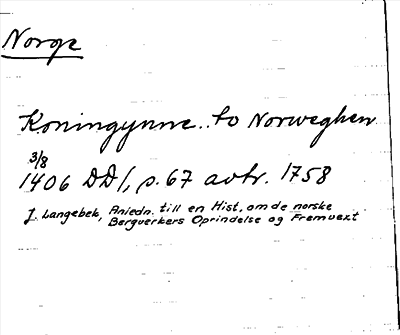 Norge
Koningynne.. to Norweghen
3/8
1406 DD1, s. 67 avtr. 1758
J. Langebek, Anledn. till en Hist. om de norske
Bergverkers Oprindelse og Fremvext